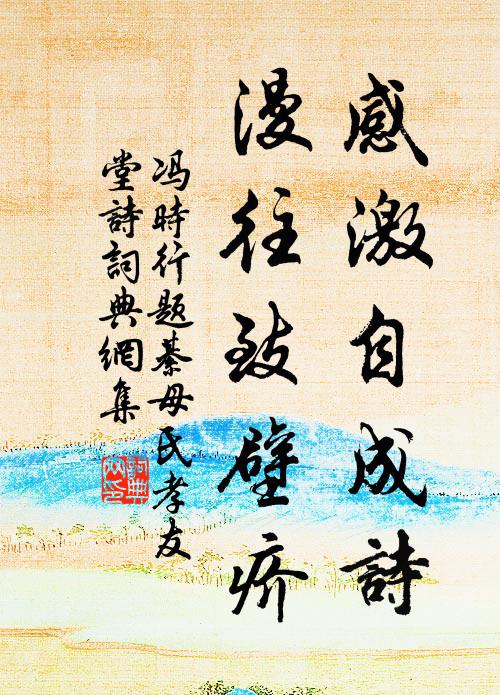 感激自成詩
漫往致壁疥
冯時行题綦母氏孝友
堂詩詞典網集